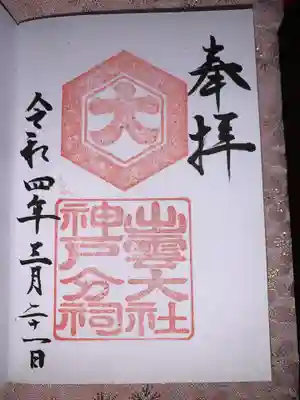 奉拝
大
出雲大社
神戸分祠
令和四年三月二十一日